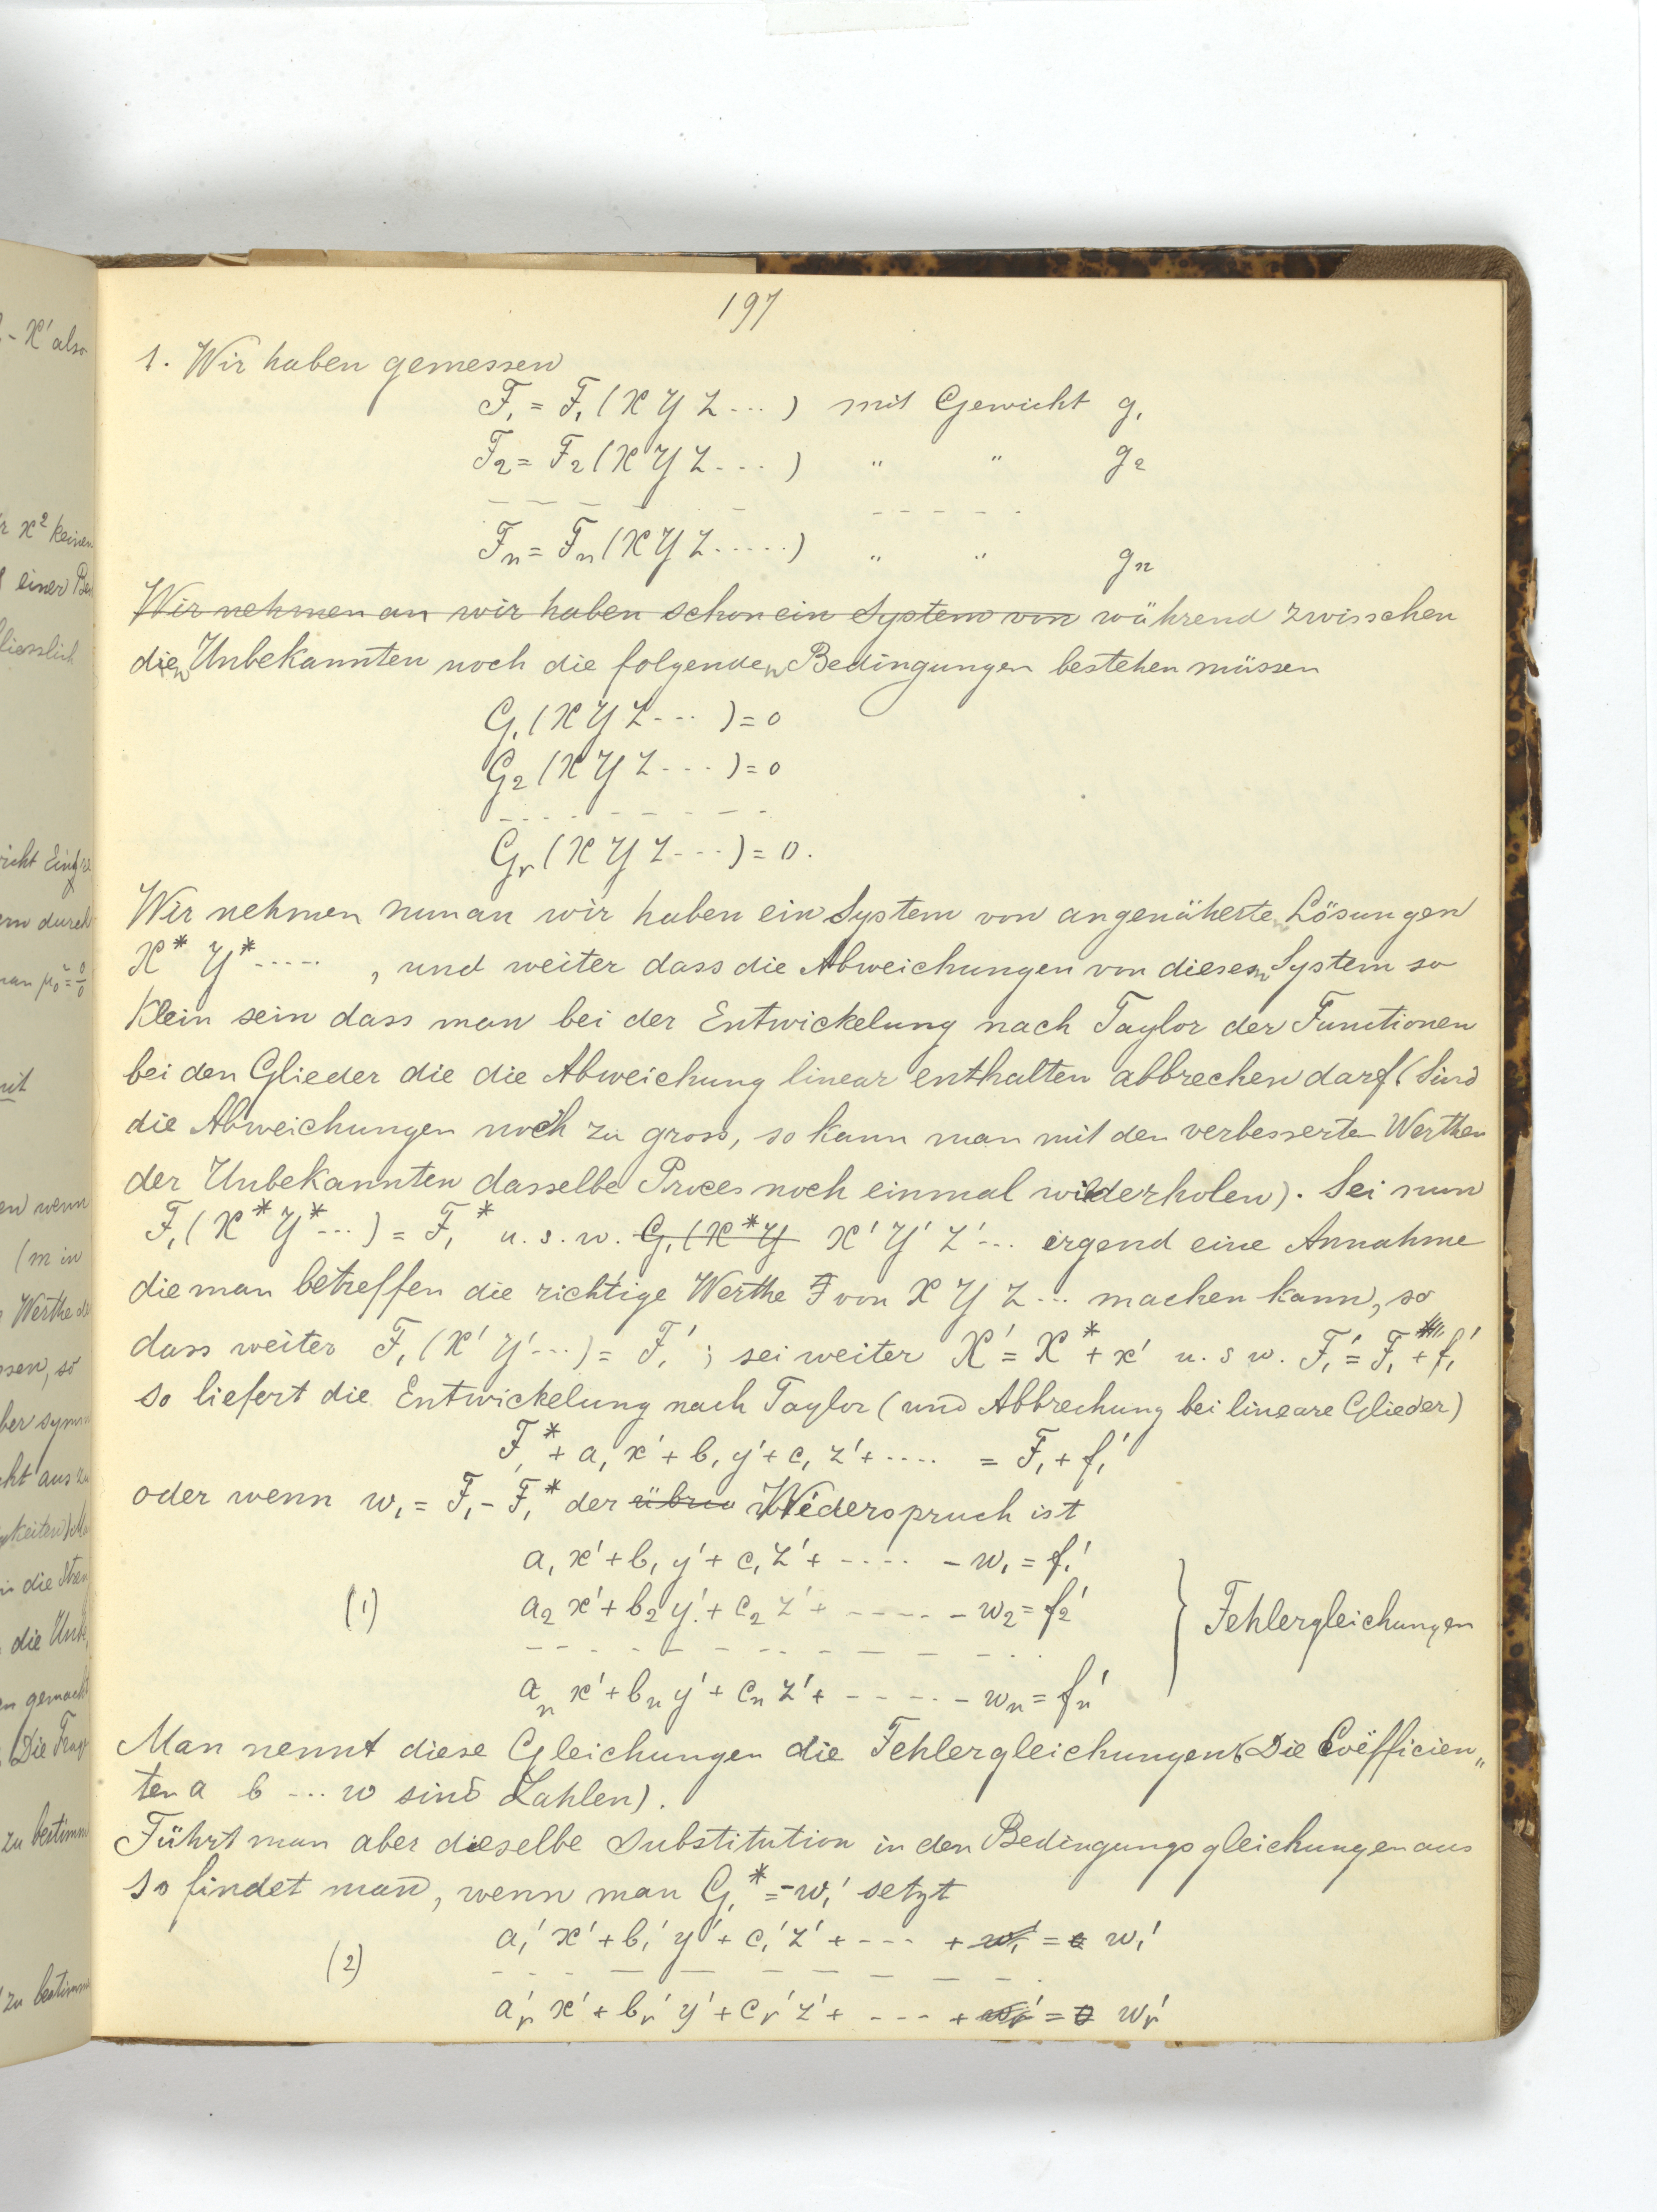 197
1. Wir haben gemessen
F₁ = F₁ (X Y Z ---) mit Gewicht g₁
F₂ = F₂ (X Y Z ---) " " g₂
Fₙ = Fₙ (X Y Z -----) " " gₙ
Wir nehmen an wir haben schon ein System von während zwisschen
dien Unbekannten noch die folgenden Bedingungen bestehen müssen
G₁ (X Y Z ---) = 0
G₂ (X Y Z ---) = 0
Gᵣ (X Y Z ---) = 0.
Wir nehmen nun an wir haben ein System von angenäherten Lösungen
X* Y* ----- , und weiter dass die Abweichungen von diesem System so
Klein sein dass man bei der Entwickelung nach Taylor der Functionen
bei den Glieder die die Abweichung linear enthalten abbrechen darf (Sind
die Abweichungen noch zu gross, so kann man mit den verbesserten Werthen
der Unbekannten dasselbe Proces noch einmal wiederholen). Sei nun
F₁ (X* Y* ---) = F₁* u. s. w. G₁ (X* Y X' Y' Z' --- irgend eine Annahme
die man betreffen die richtige Werthe F von X Y Z --- machen kann, so
dass weiter F₁ (X' Y' ---) = F₁' ; sei weiter X' = X* + x' u. s w. F₁' = F₁ + f₁'
so liefert die Entwickelung nach Taylor (und Abbrechung bei lineare Glieder)
F₁* + a₁ x' + b₁ y' + c₁ z' + ---- = F₁ + f₁'
oder wenn w₁ = F₁ - F₁* der übrig Wiederspruch ist
a₁ x' + b₁ y' + c₁ z' + ---- - w₁ = f₁'
(1) a₂ x' + b₂ y' + c₂ z' + ----- - w₂ = f₂' } Fehlergleichungen
aₙ x' + bₙ y' + cₙ z' + ----- - wₙ = fₙ'
Man nennt diese Gleichungen die Fehlergleichungen (Die Coëfficien„
ten a b --- w sind Zahlen).
Führt man aber dieselbe Substitution in den Bedingungsgleichungen aus
so findet man, wenn man G₁* = -w₁' setzt
a₁' x' + b₁' y' + c₁' z' + --- + w₁' = 0 w₁'
(2)
aᵣ' x' + bᵣ' y' + cᵣ' z' + --- + wᵣ' = 0 wᵣ'